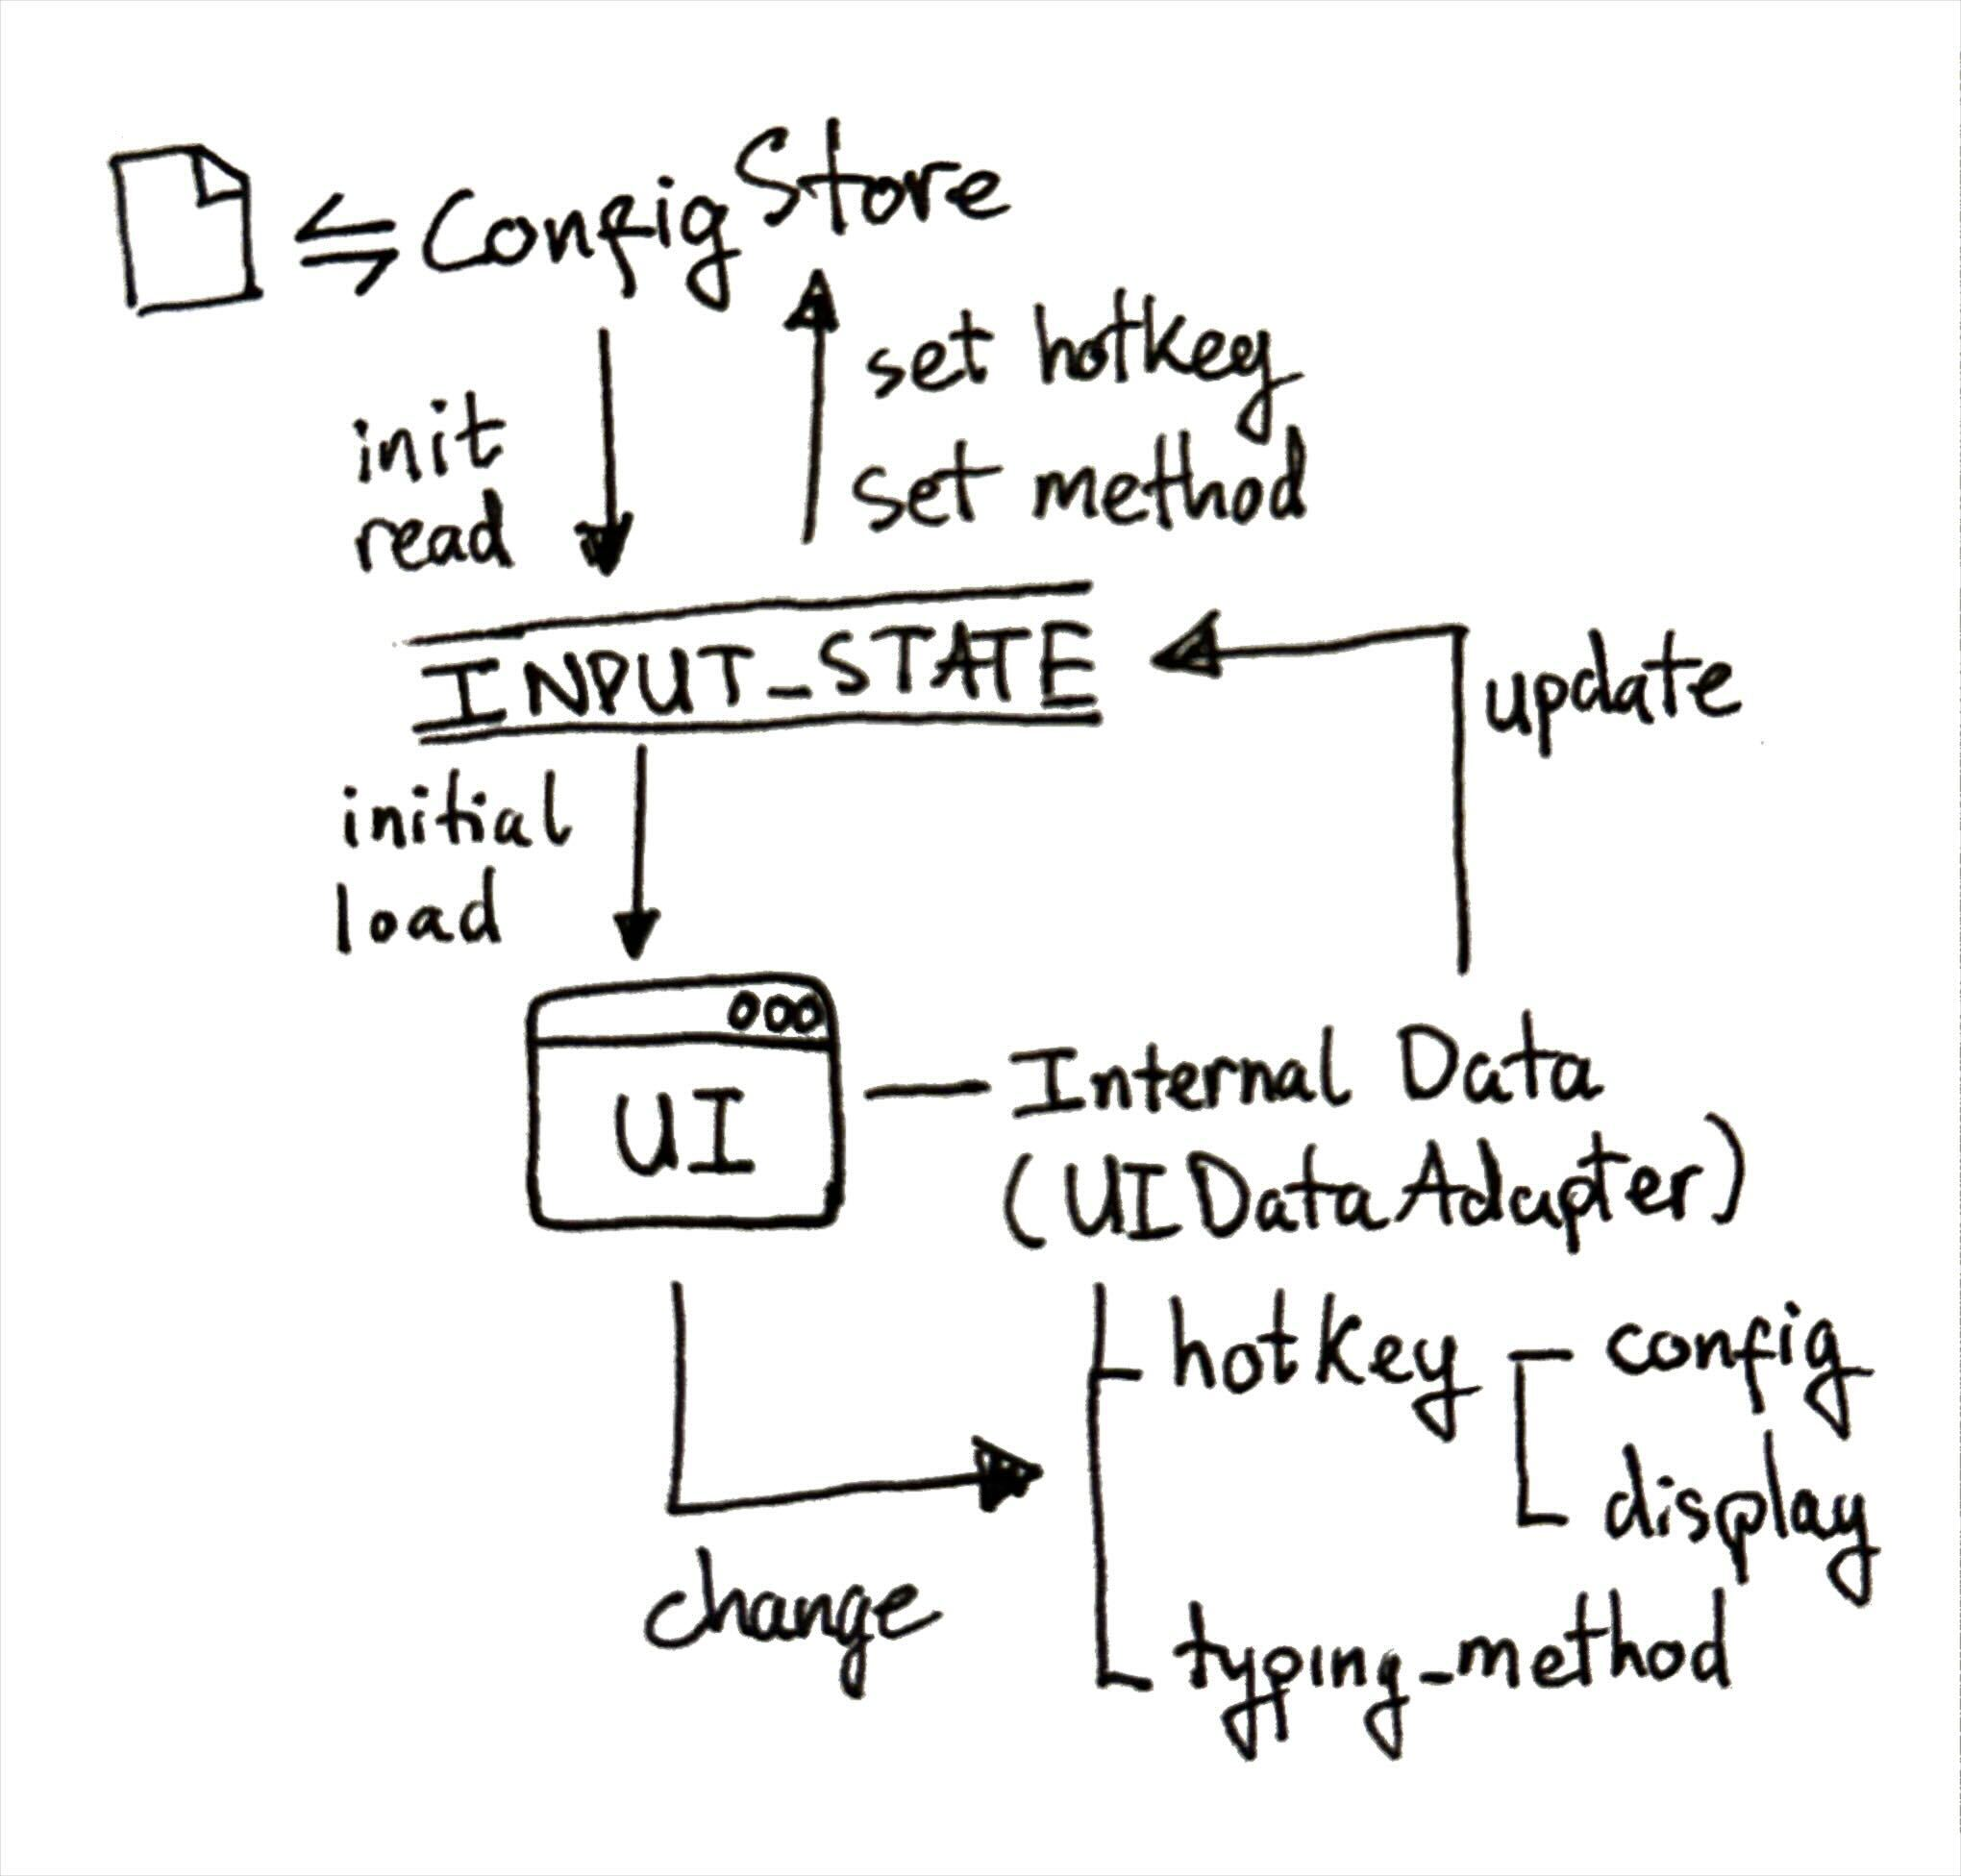 ConfigStore
init
read
set hotkey
set method
INPUT_STATE
update
initial
load
UI
Internal Data
(UIDataAdapter)
hotkey
config
display
change
typing_method